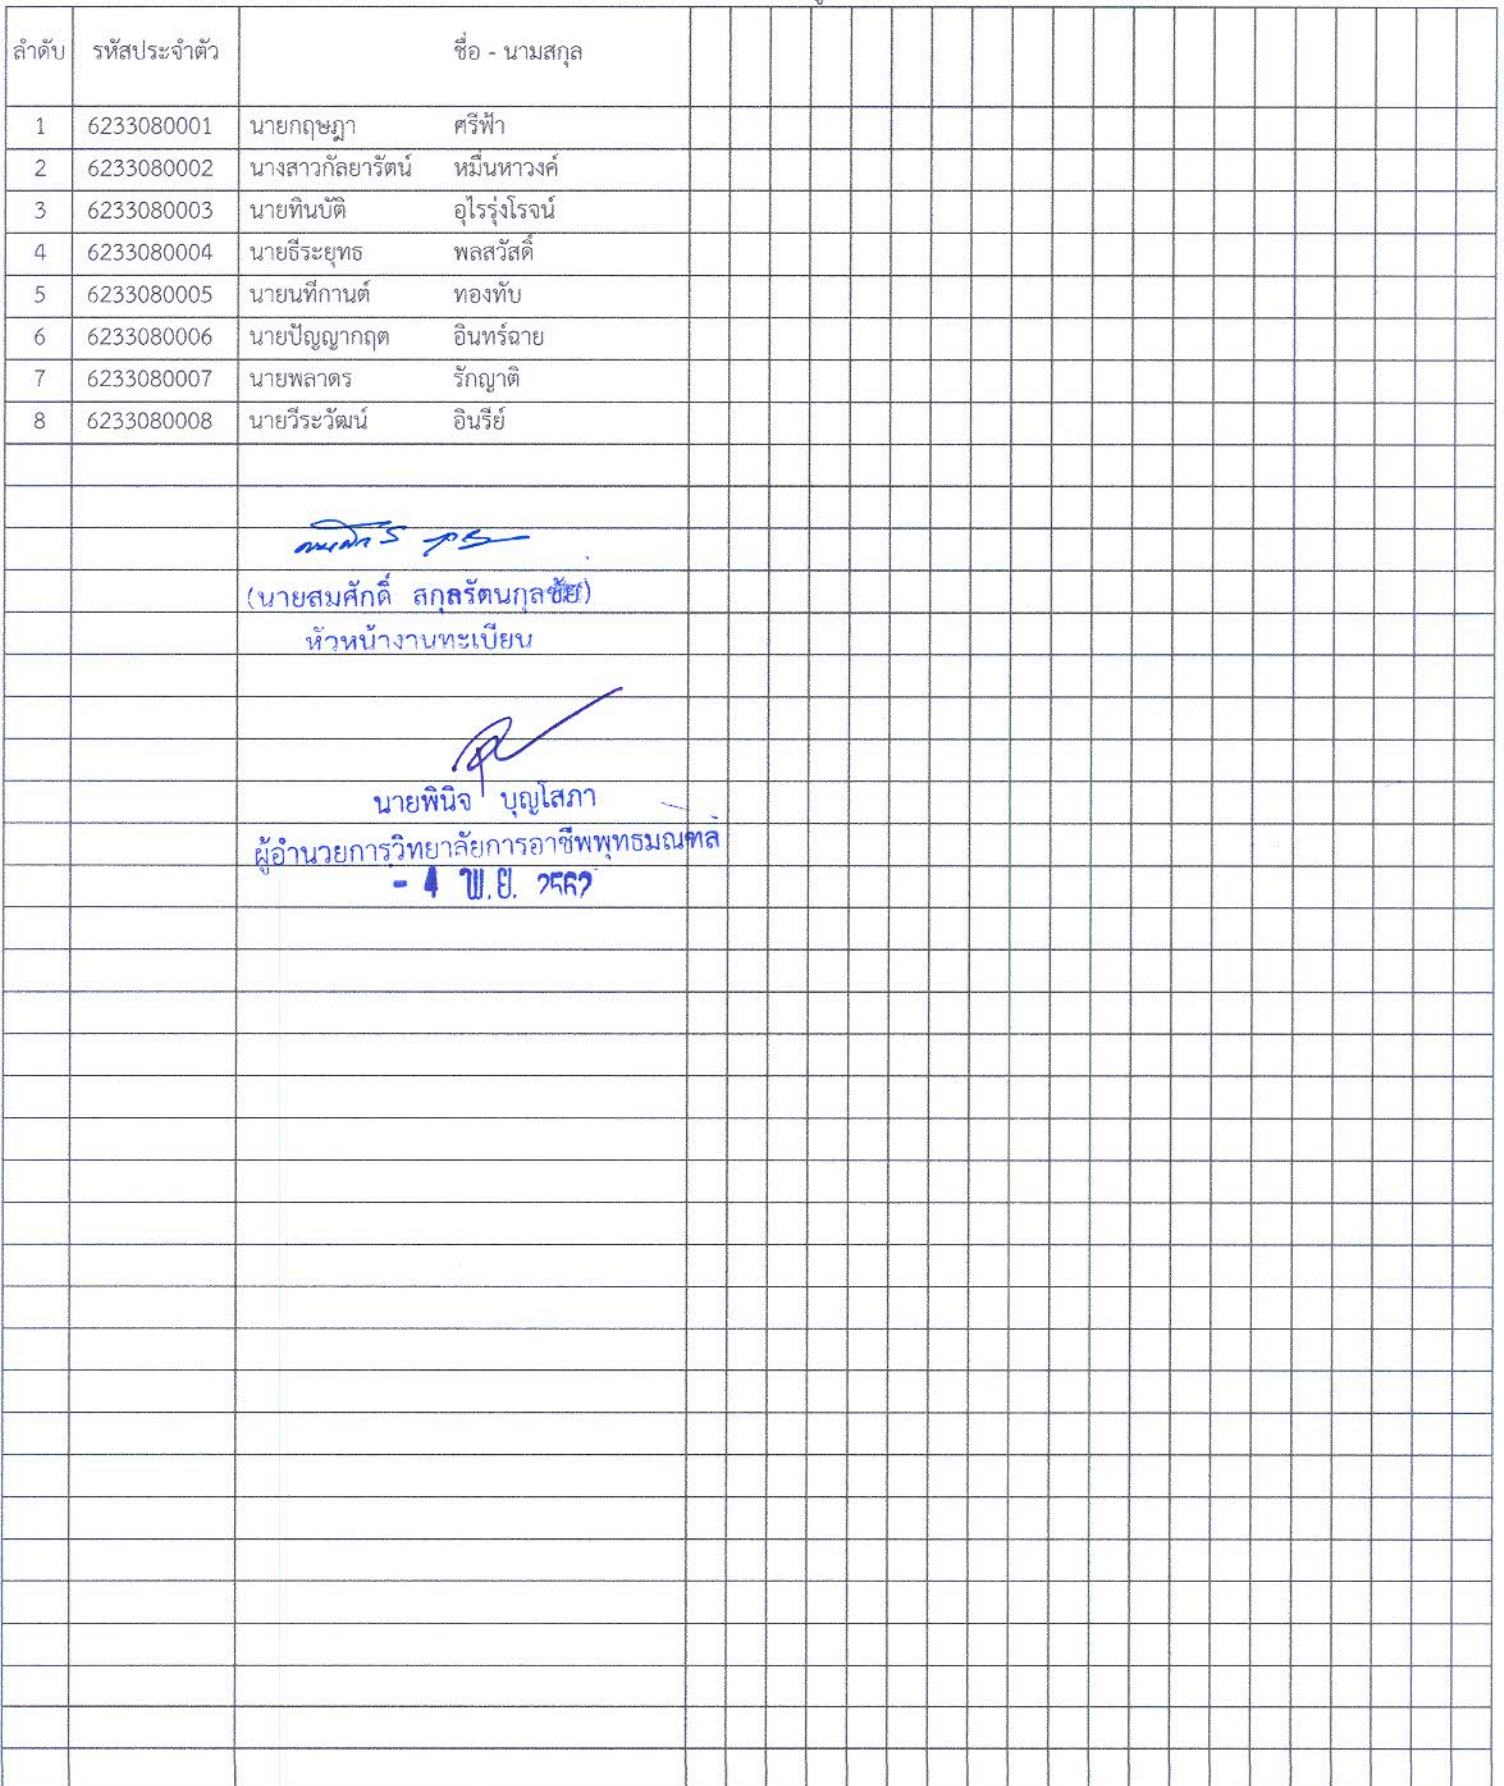 ลำดับ รหัสประจำตัว ชื่อ - นามสกุล
1 6233080001 นายกฤษฎา ศรีฟ้า
2 6233080002 นางสาวกัลยารัตน์ หมื่นหาวงค์
3 6233080003 นายทินบัติ อุไรรุ่งโรจน์
4 6233080004 นายธีระยุทธ พลสวัสดิ์
5 6233080005 นายนทีกานต์ ทองทับ
6 6233080006 นายปัญญากฤต อินทร์ฉาย
7 6233080007 นายพลาดร รักญาติ
8 6233080008 นายวีระวัฒน์ อินรีย์
(นายสมศักดิ์ สกุลรัตนกุลชัย)
หัวหน้างานทะเบียน
นายพินิจ บุญโสภา
ผู้อำนวยการวิทยาลัยการอาชีพพุทธมณฑล
- 4 พ.ย. 2562